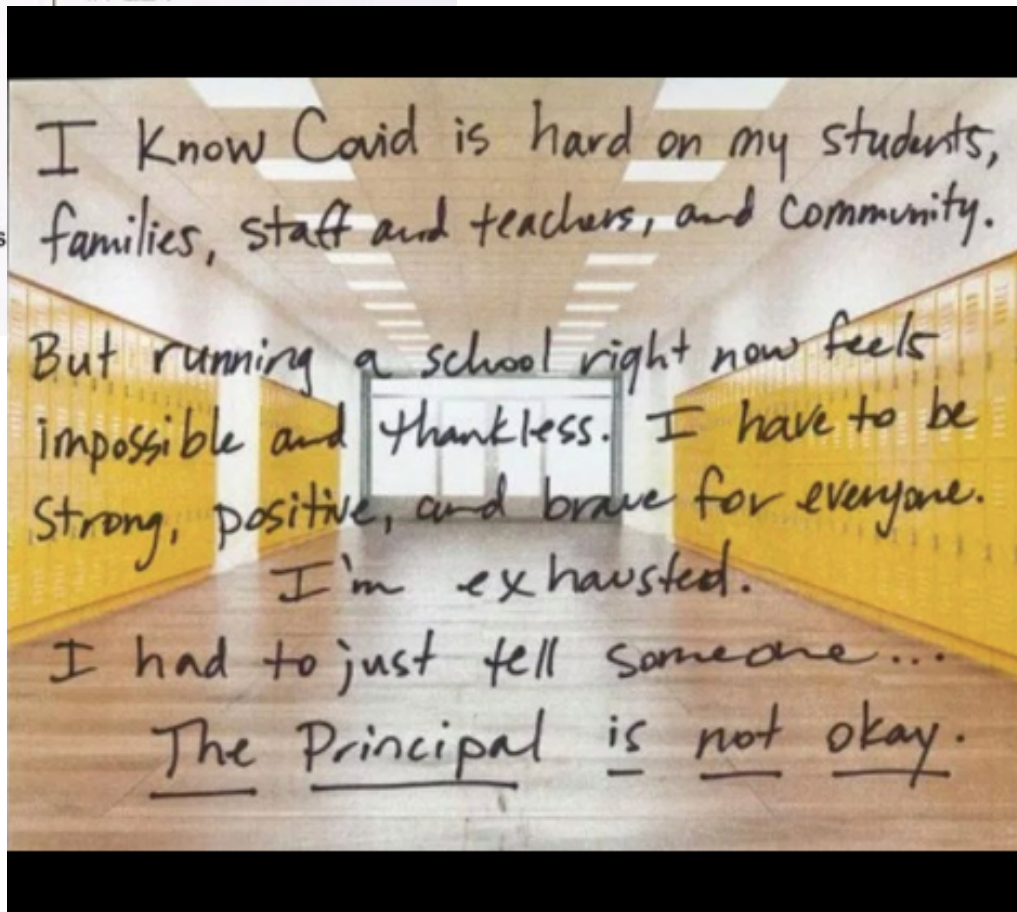 I Know Covid is hard on my students,
families, staff and teachers, and community.
But running a school right now feels
impossible and thankless. I have to be
strong, positive, and brave for everyone.
I'm exhausted.
I had to just tell someone...
The Principal is not okay.